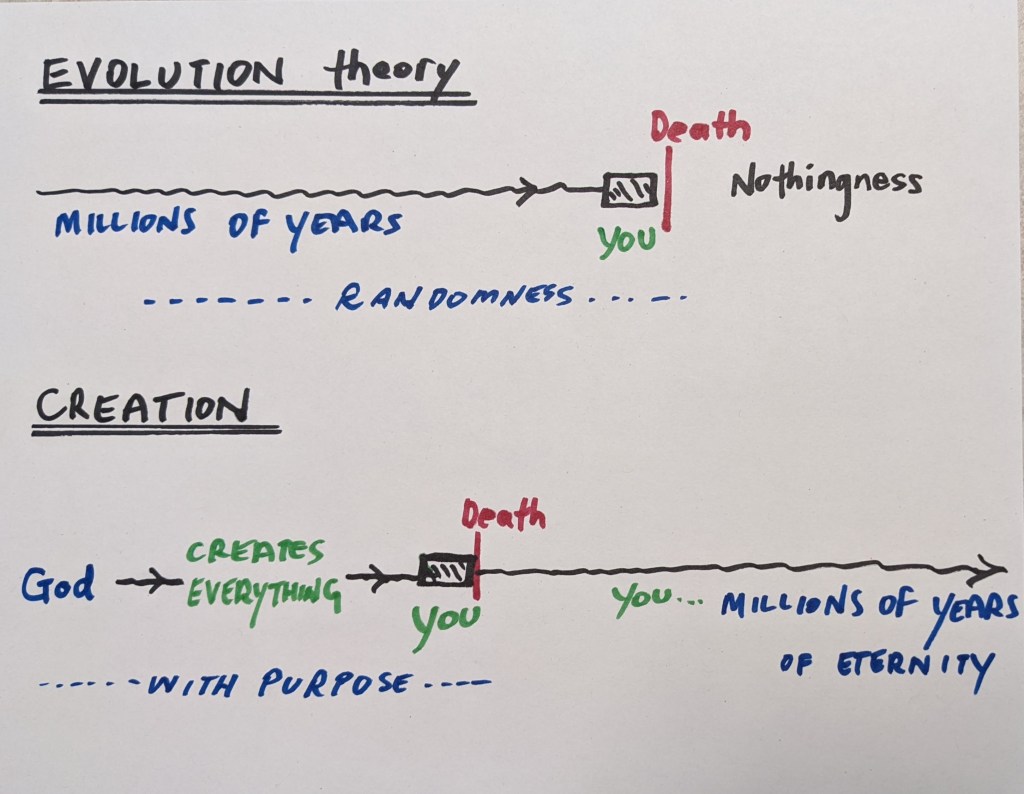 EVOLUTION theory
Death
Nothingness
MILLIONS OF YEARS
YOU
RANDOMNESS
CREATION
Death
God
CREATES
EVERYTHING
YOU
YOU...
MILLIONS OF YEARS
OF ETERNITY
WITH PURPOSE